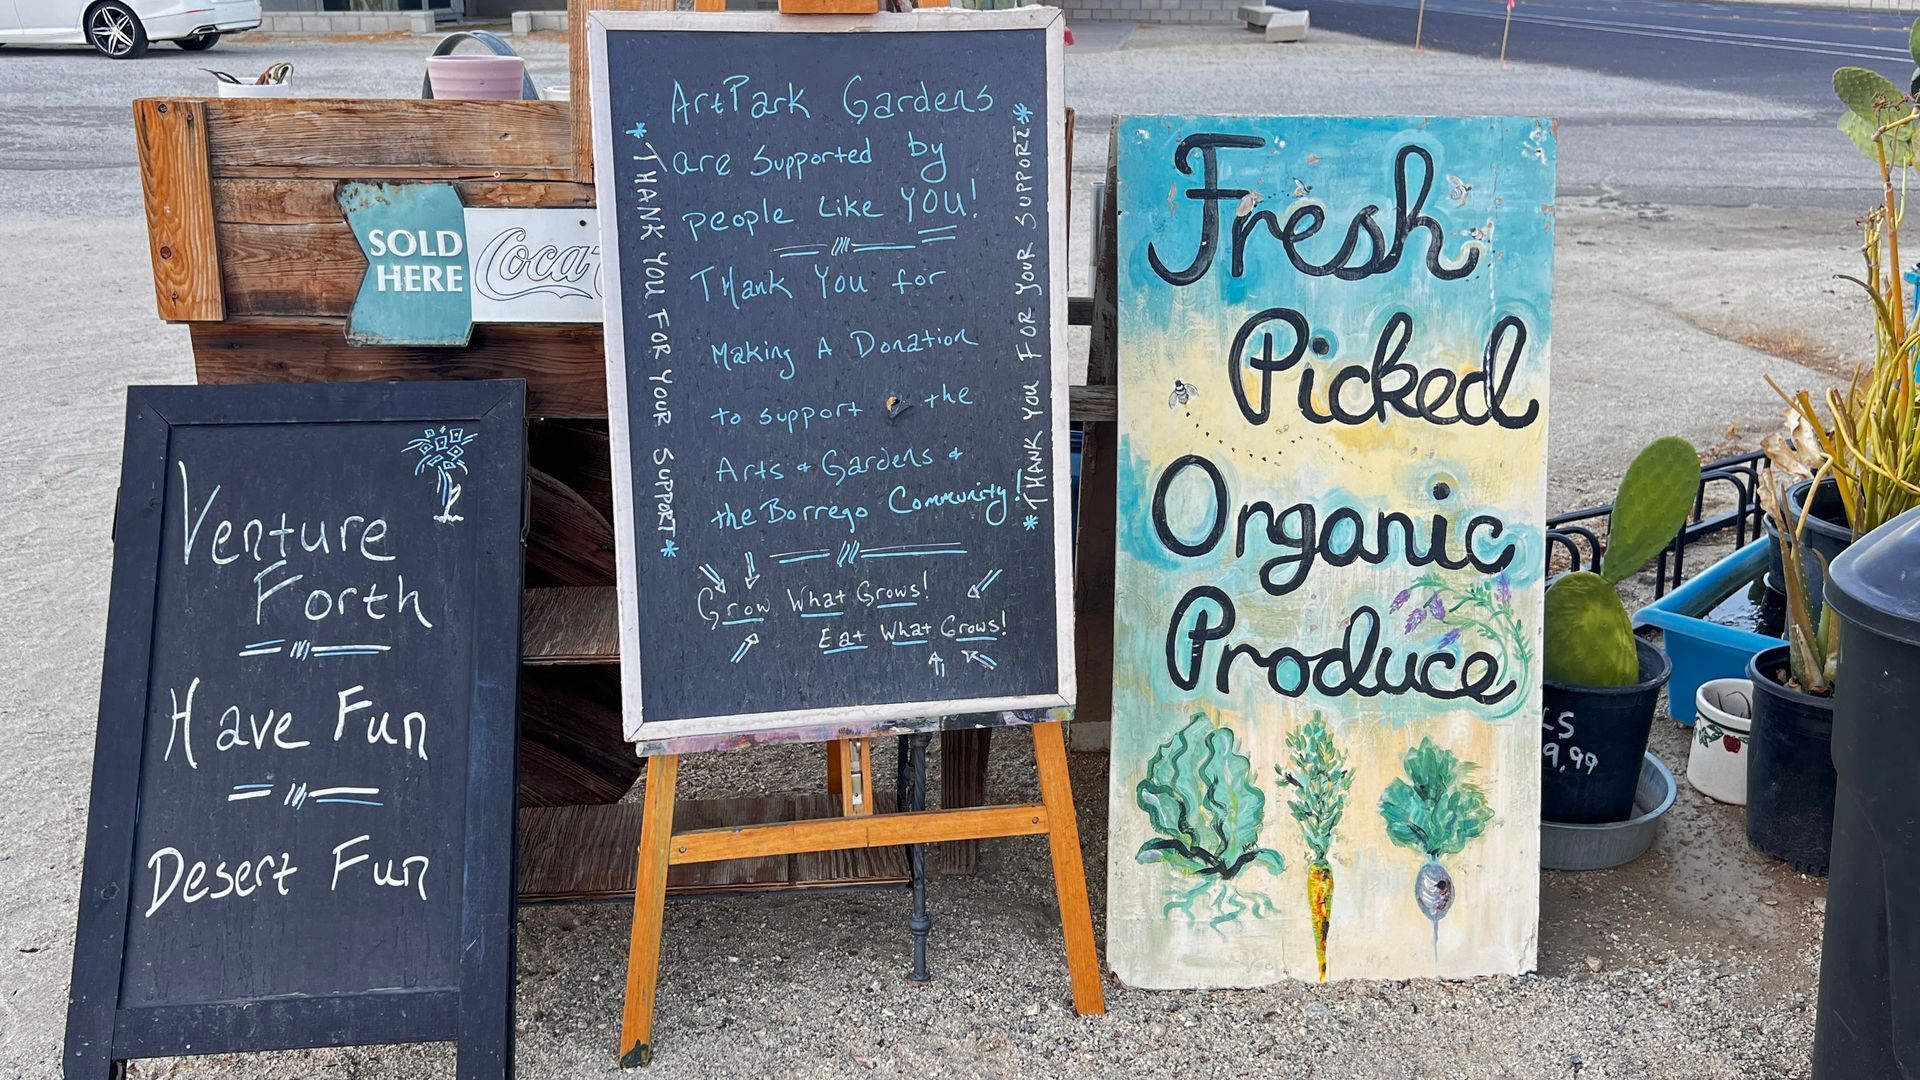 SOLD
HERE
Coca
Venture
Forth
Have Fun
Desert Fun
ArtPark Gardens
are Supported by
people Like YOU!
Thank You for
Making A Donation
to support the
Arts + Gardens +
the Borrego Community!
Grow What Grows!
Eat What Grows!
*THANK YOU FOR YOUR SUPPORT*
*THANK YOU FOR YOUR SUPPORT*
Fresh
Picked
Organic
Produce
9.99